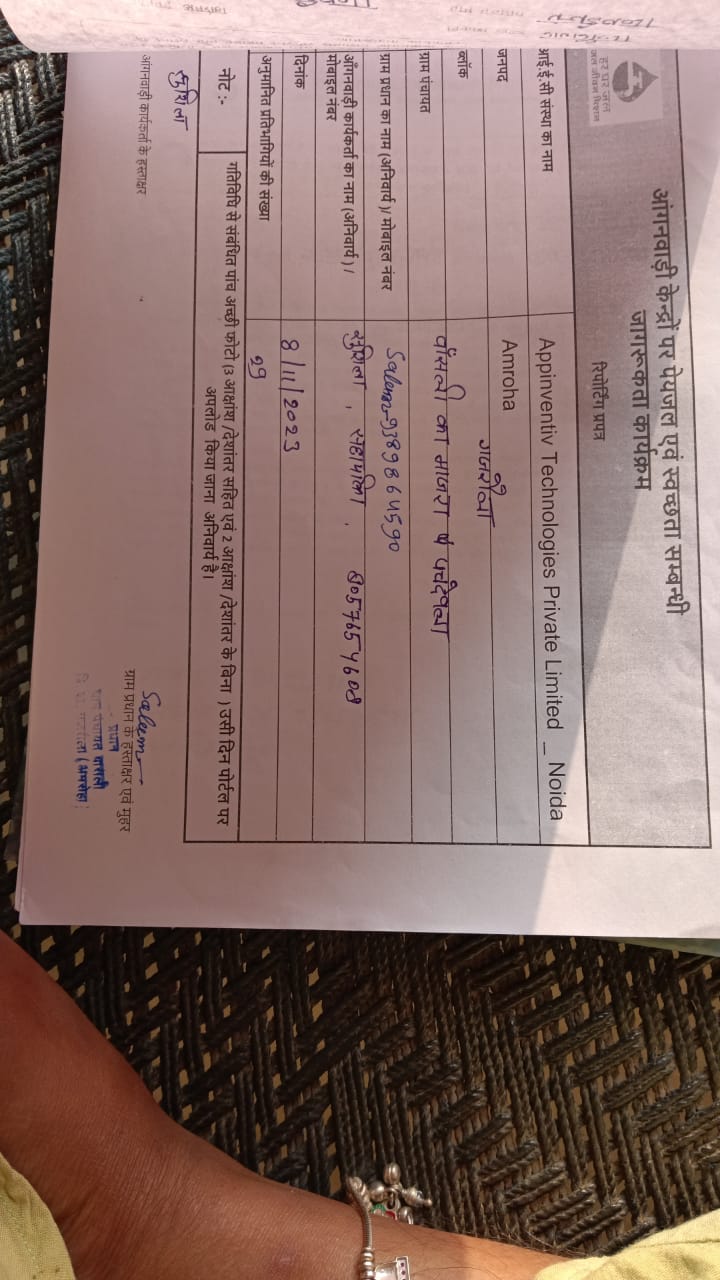 हर घर जल
जल जीवन मिशन
आंगनवाड़ी केन्द्रों पर पेयजल एवं स्वच्छता सम्बन्धी
जागरूकता कार्यक्रम
रिपोर्टिंग प्रपत्र
आई.ई.सी संस्था का नाम Appinventiv Technologies Private Limited _ Noida
जनपद Amroha
ब्लॉक गजरौला
ग्राम पंचायत का माजरा
ग्राम प्रधान का नाम (अनिवार्य )/ मोबाइल नंबर Saleem 9389864590
आँगनवाड़ी कार्यकर्ता का नाम (अनिवार्य ) / सुशिला , 8057654608
मोबाइल नंबर
दिनांक 8/11/2023
अनुमानित प्रतिभागियों की संख्या 29
नोट :- गतिविधि से संबंधित पांच अच्छी फोटो (3 आक्षांश /देशांतर सहित एवं 2 आक्षांश /देशांतर के बिना ) उसी दिन पोर्टल पर
अपलोड किया जाना अनिवार्य है।
सुशिला
आंगनवाड़ी कार्यकर्ता के हस्ताक्षर
Saleem
ग्राम प्रधान के हस्ताक्षर एवं मुहर
प्रधान
ग्राम पंचायत
(अमरोहा)